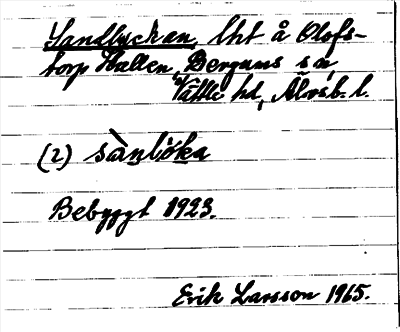 Sandlyckan, lht å Olofs-
torp Hallen, Bergums sn,
Vättle hd, Älvsb. l.
(2) sànlỳka
Bebyggt 1923.
Erik Larsson 1965.